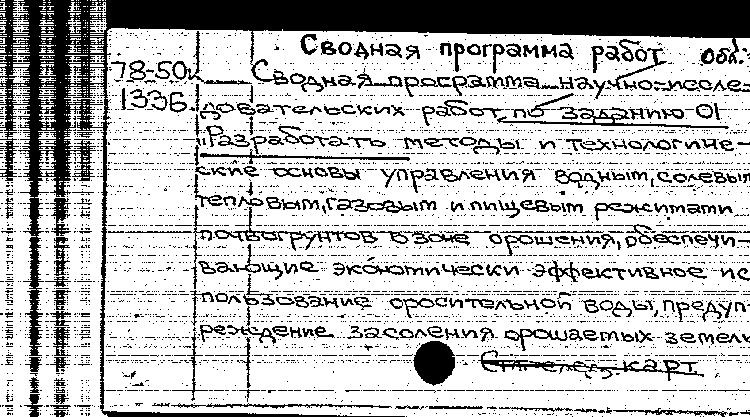 Сводная программа работ Обл.
78-50
133б.
Сводная программа научно-иссле-
довательских работ по заданию 01
"Разработать методы и технологиче-
ские основы управления водным, солевым
тепловым, газовым и пищевым режимами
почвогрунтов в зоне орошения, обеспечи-
вающие экономически эффективное ис
пользование оросительной воды, предуп
реждение засоления орошаемых земель
карт.